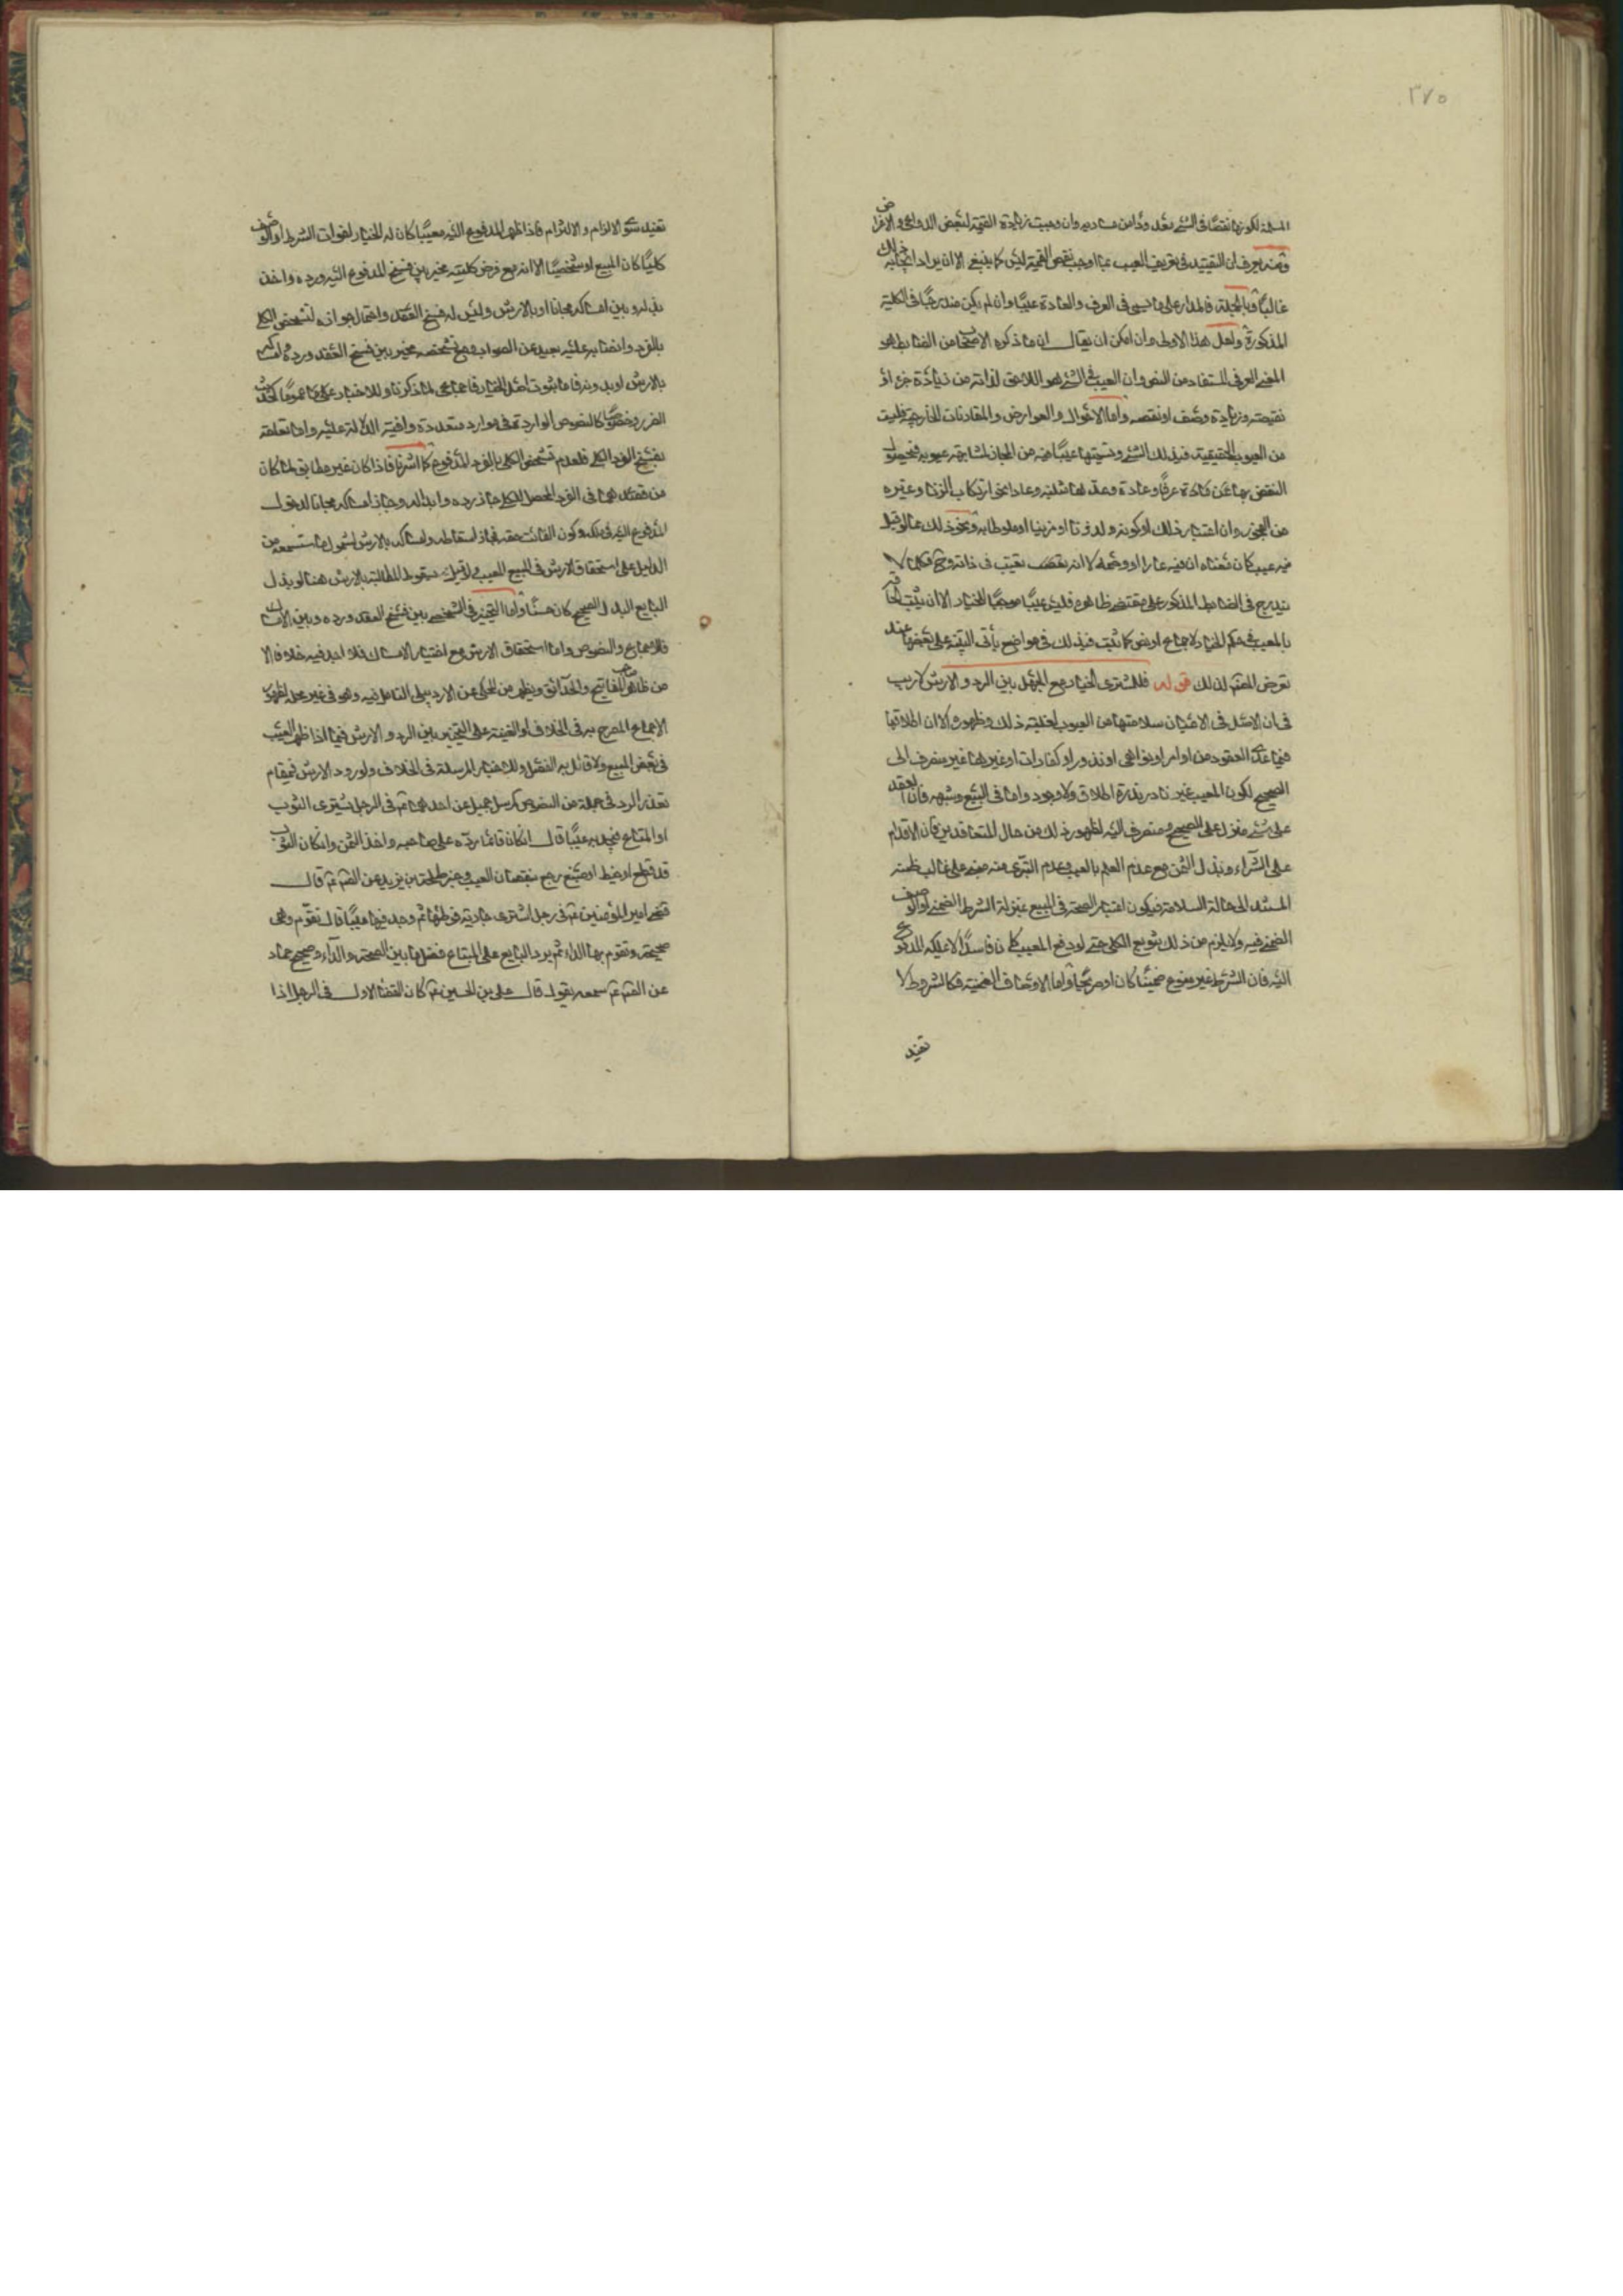 ٣٧٥
المسلمة لكونها نقصا في الشئ بعد وان وجبت زيادة القيمة لبعض الدواعي والاغراض
ومنه يعرف ان التقييد في تعريف العيب بما اوجب نقص القيمة ليس كما ينبغي الا ان يراد ايجابه ذلك
غالبا وبالجملة فالمدار على ما يسمى في العرف والعادة عيبا وان لم يكن مندرجا في الكلية
المذكورة ولعل هذا الاولى وان امكن ان يقال ان ما ذكره الاصحاب من الضابط هو
المعنى العرفي المستفاد من النص وان العيب في الشئ هو اللاحق لذاته من زيادة جزء او
نقيصته وزيادة وصف او نقصه واما الاحوال والعوارض والمقارنات الخارجية فليست
من العيوب الحقيقية في ذلك الشئ وتسميتها عيبا فيه من المجاز لمشابهته عيوبه فيحصل
النقص بها عرفا وعادة
من الفجور وان اعتبار ذلك او كونه ولد زنا او مزنيا او ملوطا به ونحو ذلك مما لو قيل
فيه عيب كان معناه ان فيه عارا او وصمة لا انه نقص تعيب في ذاته وح فكلما لا
يندرج في الضابط المذكور على مقتضى ظاهره فليس عيبا موجبا للخيار الا ان يثبت الحاقه
بالمعيب في حكم الخيار لاجماع او نص كما ثبت في ذلك في مواضع يأتي التنبيه على بعضها عند
تعرض المصنف لذلك قوله فللمشتري الخيار مع الجهل بين الرد والارش لا ريب
في ان الاصل في الاعيان سلامتها من العيوب لغلبة ذلك وظهوره الا ان اطلاقها
فيما عدا العقود من اوامر او نواهي او نذور او كفارات او غيرها غير منصرف الى
الصحيح لكون المعيب غير نادر ندرة اطلاق ولا وجود واما في البيع وشبهه فان العقد
على شئ منزل على الصحيح ومنصرف اليه لظهور ذلك من حال المتعاقدين فان الاقدام
على الشراء وبذل الثمن مع عدم العلم بالعيب وعدم التبري منه مبني على غالب ظنه
المستند الى اصالة السلامة فيكون اعتبار الصحة في المبيع بمنزلة الشرط الضمني او الوصف
الضمني فيه ولا يلزم من ذلك تنويع الكلي حتى لو دفع المعيب كان فاسدا لا عليه المدفوع
اليه فان الشرط غير منوع ضمنيا كان او صريحا واما الاوصاف الضمنية فكالشروط لا
تفيد
تفيد سوى الالزام والالتزام فاذا ظهر المدفوع اليه معيبا كان له الخيار لفوات الشرط او الوصف
كليا كان المبيع او شخصيا الا انه مع فرض كليته مخير بين فسخ المدفوع اليه ورده واخذ
بدله وبين امساكه مجانا او بالارش وليس له فسخ العقد واحتمال جوازه لتشخص الكلي
بالفرد وانضباطه عليه بعيد عن الصواب ومع تشخصه مخير بين فسخ العقد ورده وامساكه
بالارش او بدونه فاما ثبوت اصل الخيار فاجماعي لما ذكرنا وللاخبار عموما كحديث
الضرر وخصوصا كالنصوص الواردة في موارد متعددة وافية الدلالة عليه واما تعلقه
بفسخ الفرد الكلي فلعدم تشخص الكلي بالفرد المدفوع كما اشرنا فاذا كان غير مطابق لما كان
من قصدهما في الفرد المحصل للكلي جاز رده وابداله وجاز امساكه مجانا لدخول
المدفوع اليه في ملكه وكون الفائت حقه فجاز اسقاطه وامساكه بالارش لشمول ما ستسمعه من
الدليل على استحقاق الارش في المبيع المعيب ولو قيل بسقوط المطالبة بالارش هنا لو بذل
البايع البدل الصحيح كان حسنا واما التخيير في الشخصي بين فسخ العقد ورده وبين الامساك
فللاجماع والنصوص واما استحقاق الارش مع اختيار الامساك فلا اجد فيه خلافا الا
من ظاهر صاحب المفاتيح والحدائق ويظهر من المحكي عن الاردبيلي التأمل فيه وهو في غير محله لظهور
الاجماع المصرح به في الخلاف او الغنية على التخيير بين الرد والارش فيما اذا ظهر العيب
في بعض المبيع ولا قائل بالفصل وللاخبار المرسلة في الخلاف ولورود الارش في مقام
تعذر الرد في جملة من النصوص كمرسل جميل عن احدهما ع في الرجل يشتري الثوب
او المتاع فيجد به عيبا قال ان كان قائما رده على صاحبه واخذ الثمن وان كان الثوب
قد قطع او خيط او صبغ رجع بنقصان العيب وخبر طلحة بن زيد عن الصادق ع قال
قضى امير المؤمنين ع في رجل اشترى جارية فوطئها ثم وجد فيها عيبا قال تقوم وهي
صحيحة وتقوم بها الداء ثم يرد البايع على المبتاع فضل ما بين الصحة والداء وصحيح حماد
عن الصادق ع سمعه يقول قال علي بن الحسين ع كان القضاء الاول في الرجل اذا